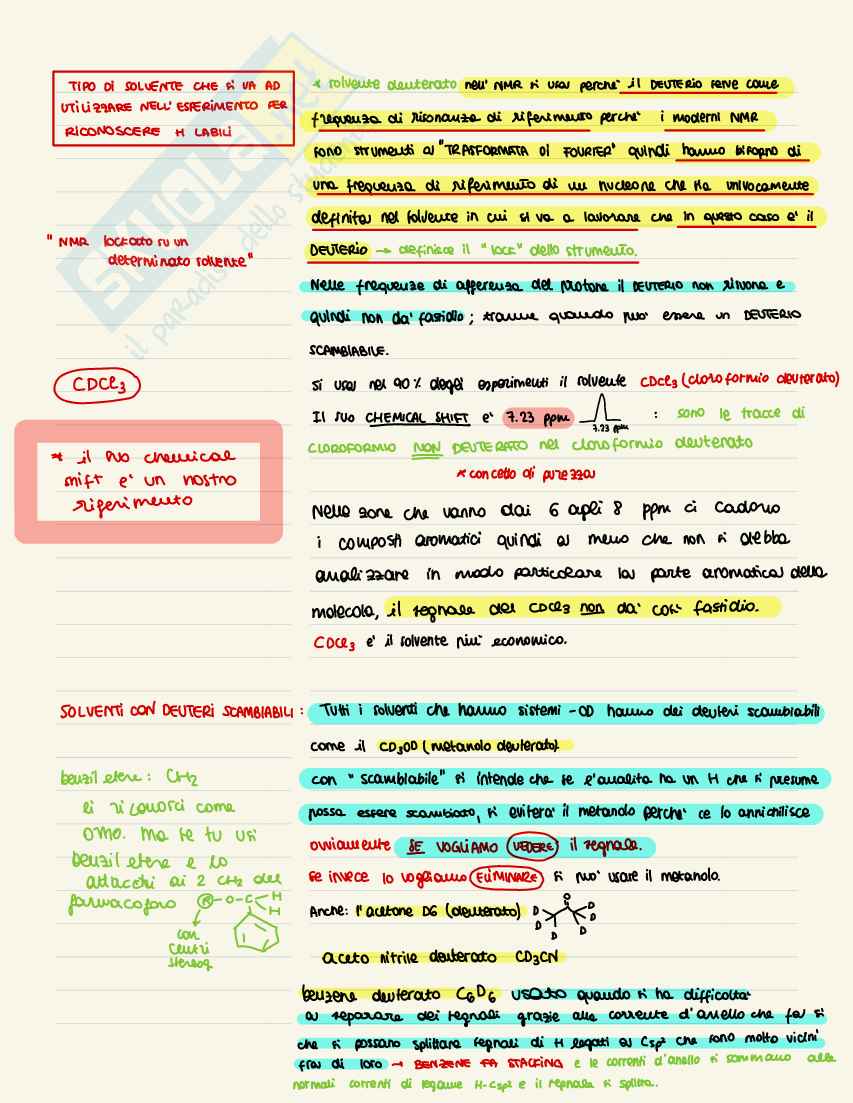 TIPO DI SOLVENTE CHE SI VA AD
UTILIZZARE NELL'ESPERIMENTO PER
RICONOSCERE H LABILI
* solvente deuterato nell'NMR si usa perche' il DEUTERIO serve come
frequenza di risonanza di riferimento perche' i moderni NMR
sono strumenti a "TRASFORMATA DI FOURIER" quindi hanno bisogno di
una frequenza di riferimento di un nucleone che ha univocamente
definita nel solvente in cui si va a lavorare che in questo caso e' il
DEUTERIO → definisce il "lock" dello strumento.
"NMR lockato su un
determinato solvente"
Nelle frequenze di afferenza del protone il DEUTERIO non risuona e
quindi non da' fastidio; tranne quando puo' essere un DEUTERIO
SCAMBIABILE.
CDCl3
si usa nel 90% degli esperimenti il solvente CDCl3 (cloroformio deuterato)
Il suo CHEMICAL SHIFT e' 7.23 ppm : sono le tracce di
7.23 ppm
CLOROFORMIO NON DEUTERATO nel cloroformio deuterato
* concetto di purezza
* il suo chemical
shift e' un nostro
riferimento
Nelle zone che vanno dai 6 agli 8 ppm ci cadono
i composti aromatici quindi a meno che non si debba
analizzare in modo particolare la parte aromatica della
molecola, il segnale del CDCl3 non da' cosi' fastidio.
CDCl3 e' il solvente piu' economico.
SOLVENTI CON DEUTERI SCAMBIABILI : Tutti i solventi che hanno sistemi -OD hanno dei deuteri scambiabili
come il CD3OD (metanolo deuterato)
con "scambiabile" si intende che se l'analita ha un H che si presume
possa essere scambiato, si evitera' il metanolo perche' ce lo annichilisce
ovviamente SE VOGLIAMO VEDERE il segnale.
se invece lo vogliamo ELIMINARE si puo' usare il metanolo.
benzil etere: CH2
li riconosci come
omo. ma se tu usi
benzil etere e lo
attacchi ai 2 CH2 del
farmacoforo R-O-C-H
H
con
centri
stereog
Anche: l'acetone D6 (deuterato)
O
D D
D D
D D
aceto nitrile deuterato CD3CN
benzene deuterato C6D6 usato quando si ha difficolta'
a separare dei segnali grazie alla corrente d'anello che fa si
che si possano splittare segnali di H legati a Csp2 che sono molto vicini
fra di loro → BENZENE FA STACKING e le correnti d'anello si sommano alle
normali correnti di legame H-Csp2 e il segnale si splitta.
SKUOLA.net
il paradiso dello studente